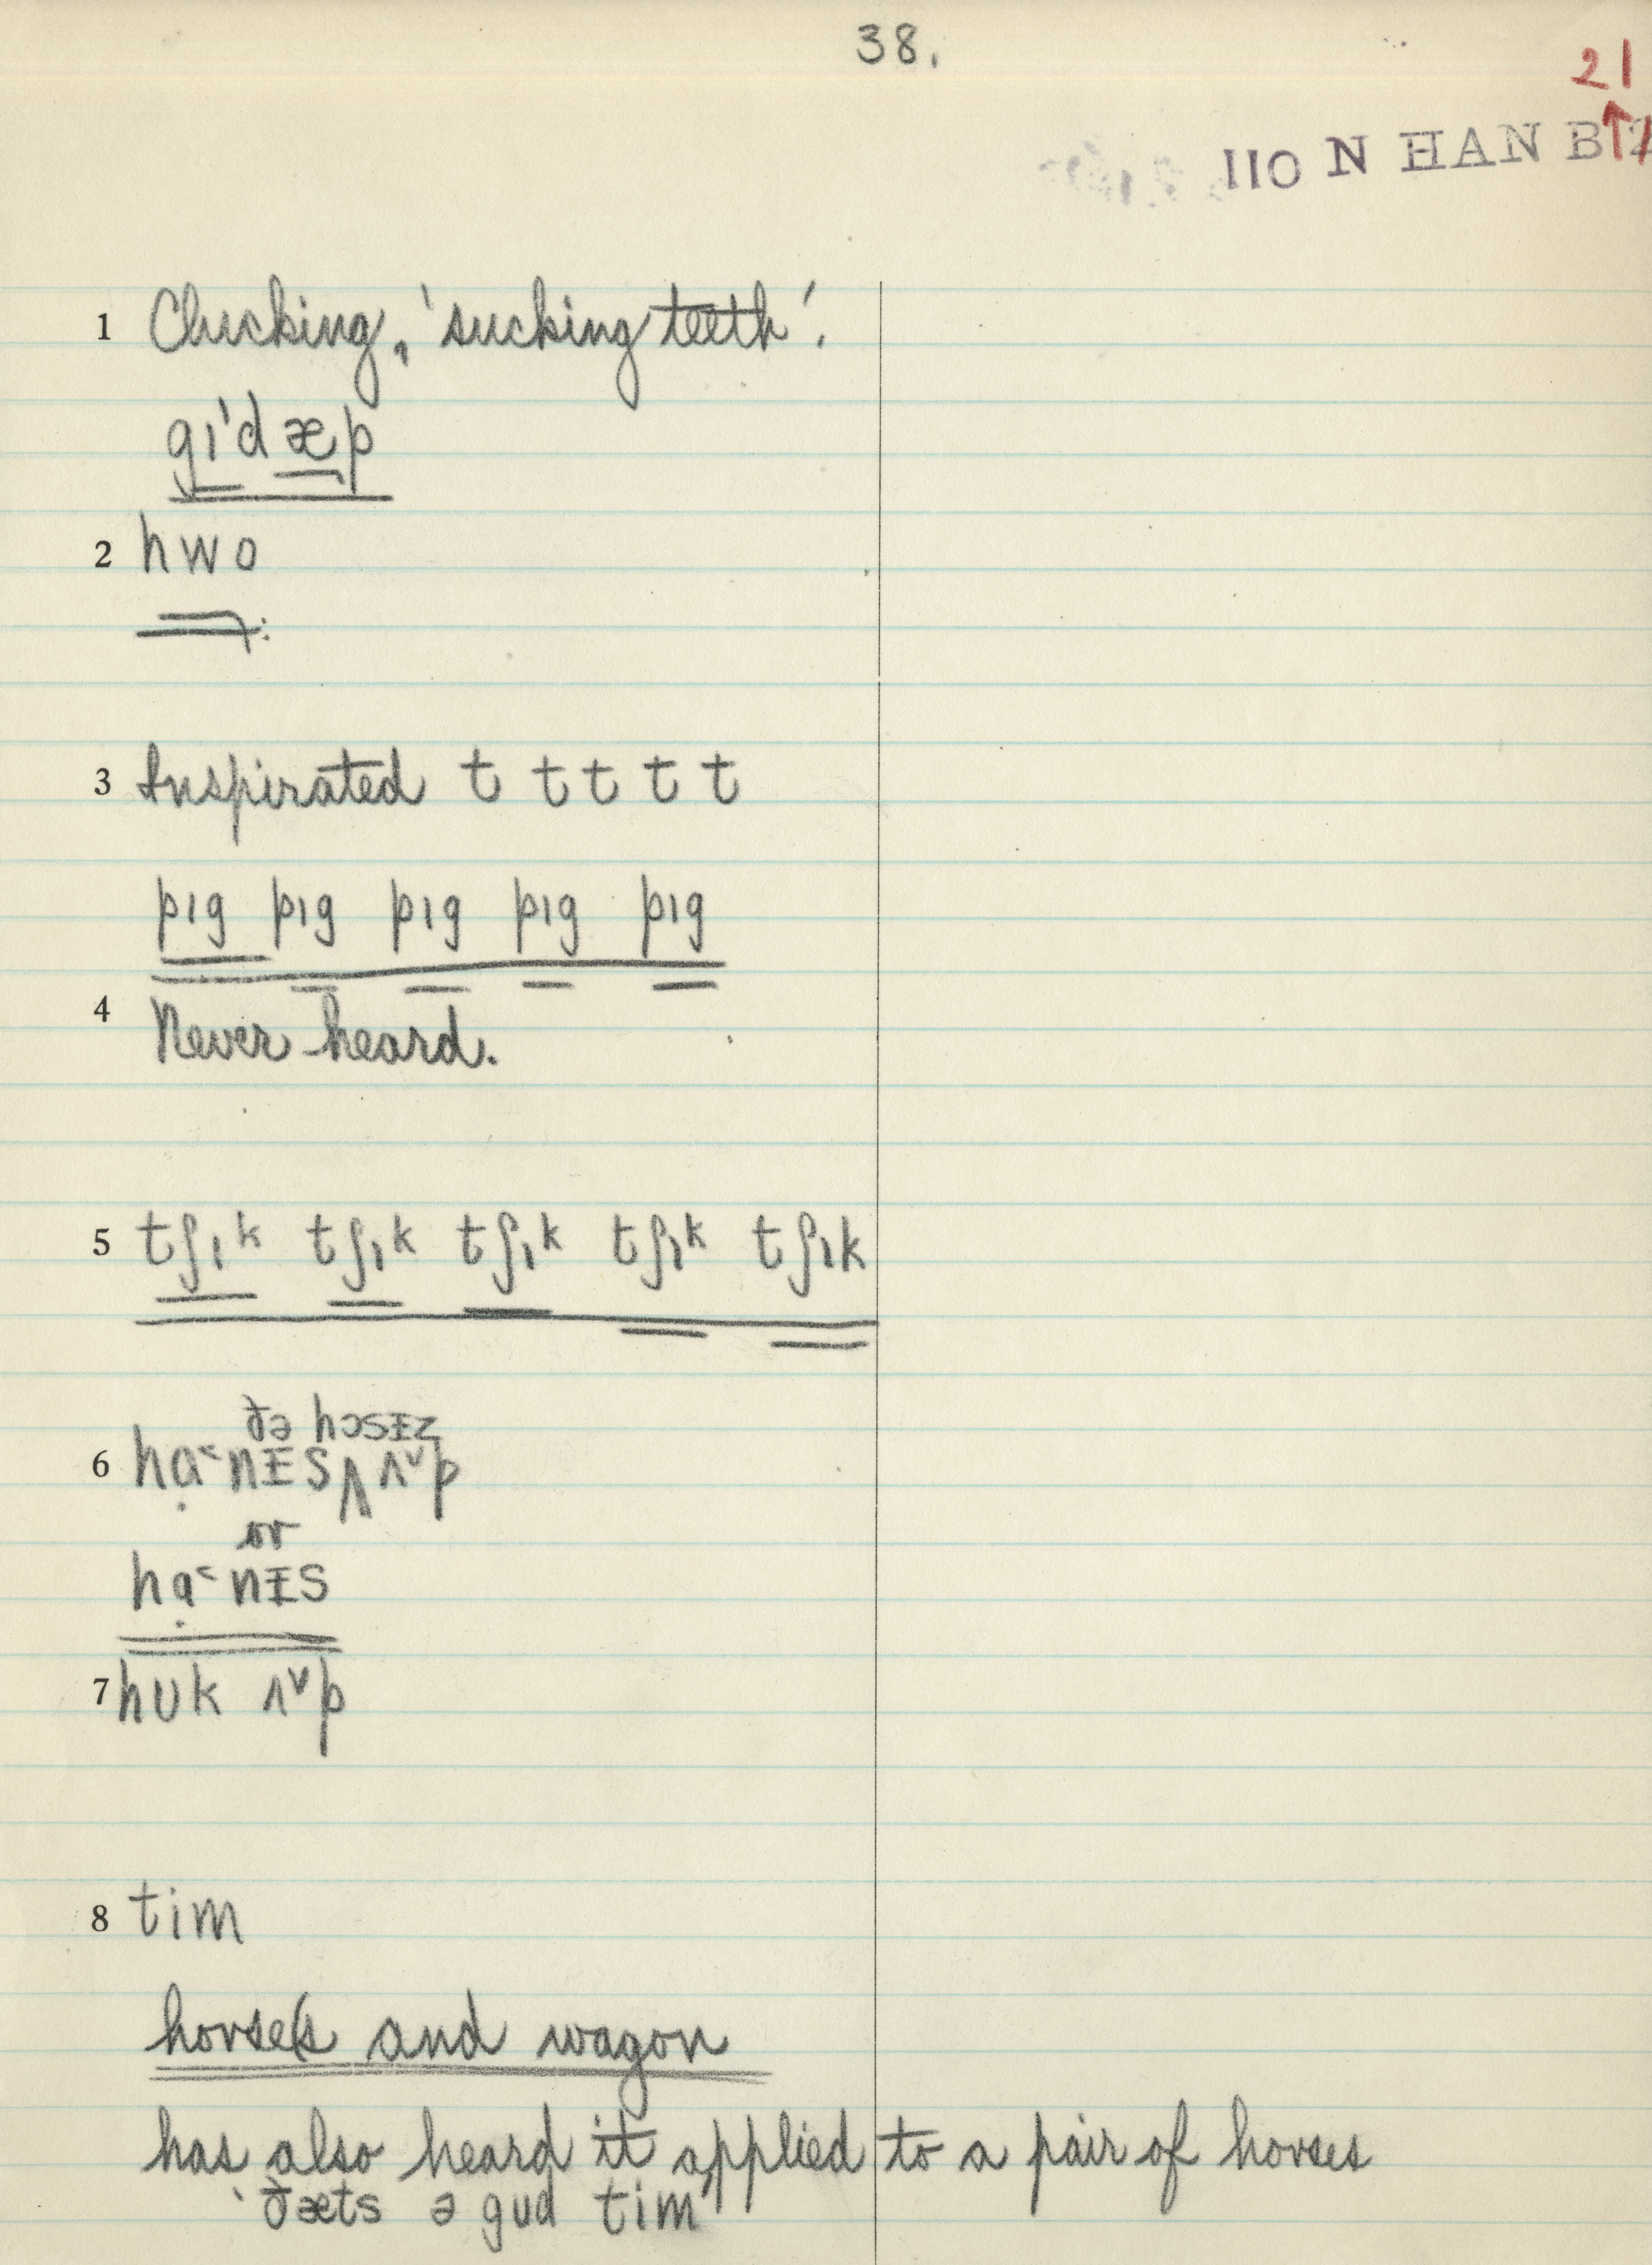 38.
21
110 N HAN B
1 Clucking, 'sucking teeth'.
gɪ'dæp
2 hwo
3 Inspirated t t t t t
pɪg pɪg pɪg pɪg pɪg
4 Never heard.
5 tʃɪk tʃɪk tʃɪk tʃɪk tʃɪk
ðə hɔsɪ̵z
6 hạ˂nɪ̵s ʌ˅p
or
hạ˂nɪ̵s
7 hʊk ʌ˅p
8 tim
horse(s and wagon
has also heard it applied to a pair of horses
'ðæts ə gud tim'